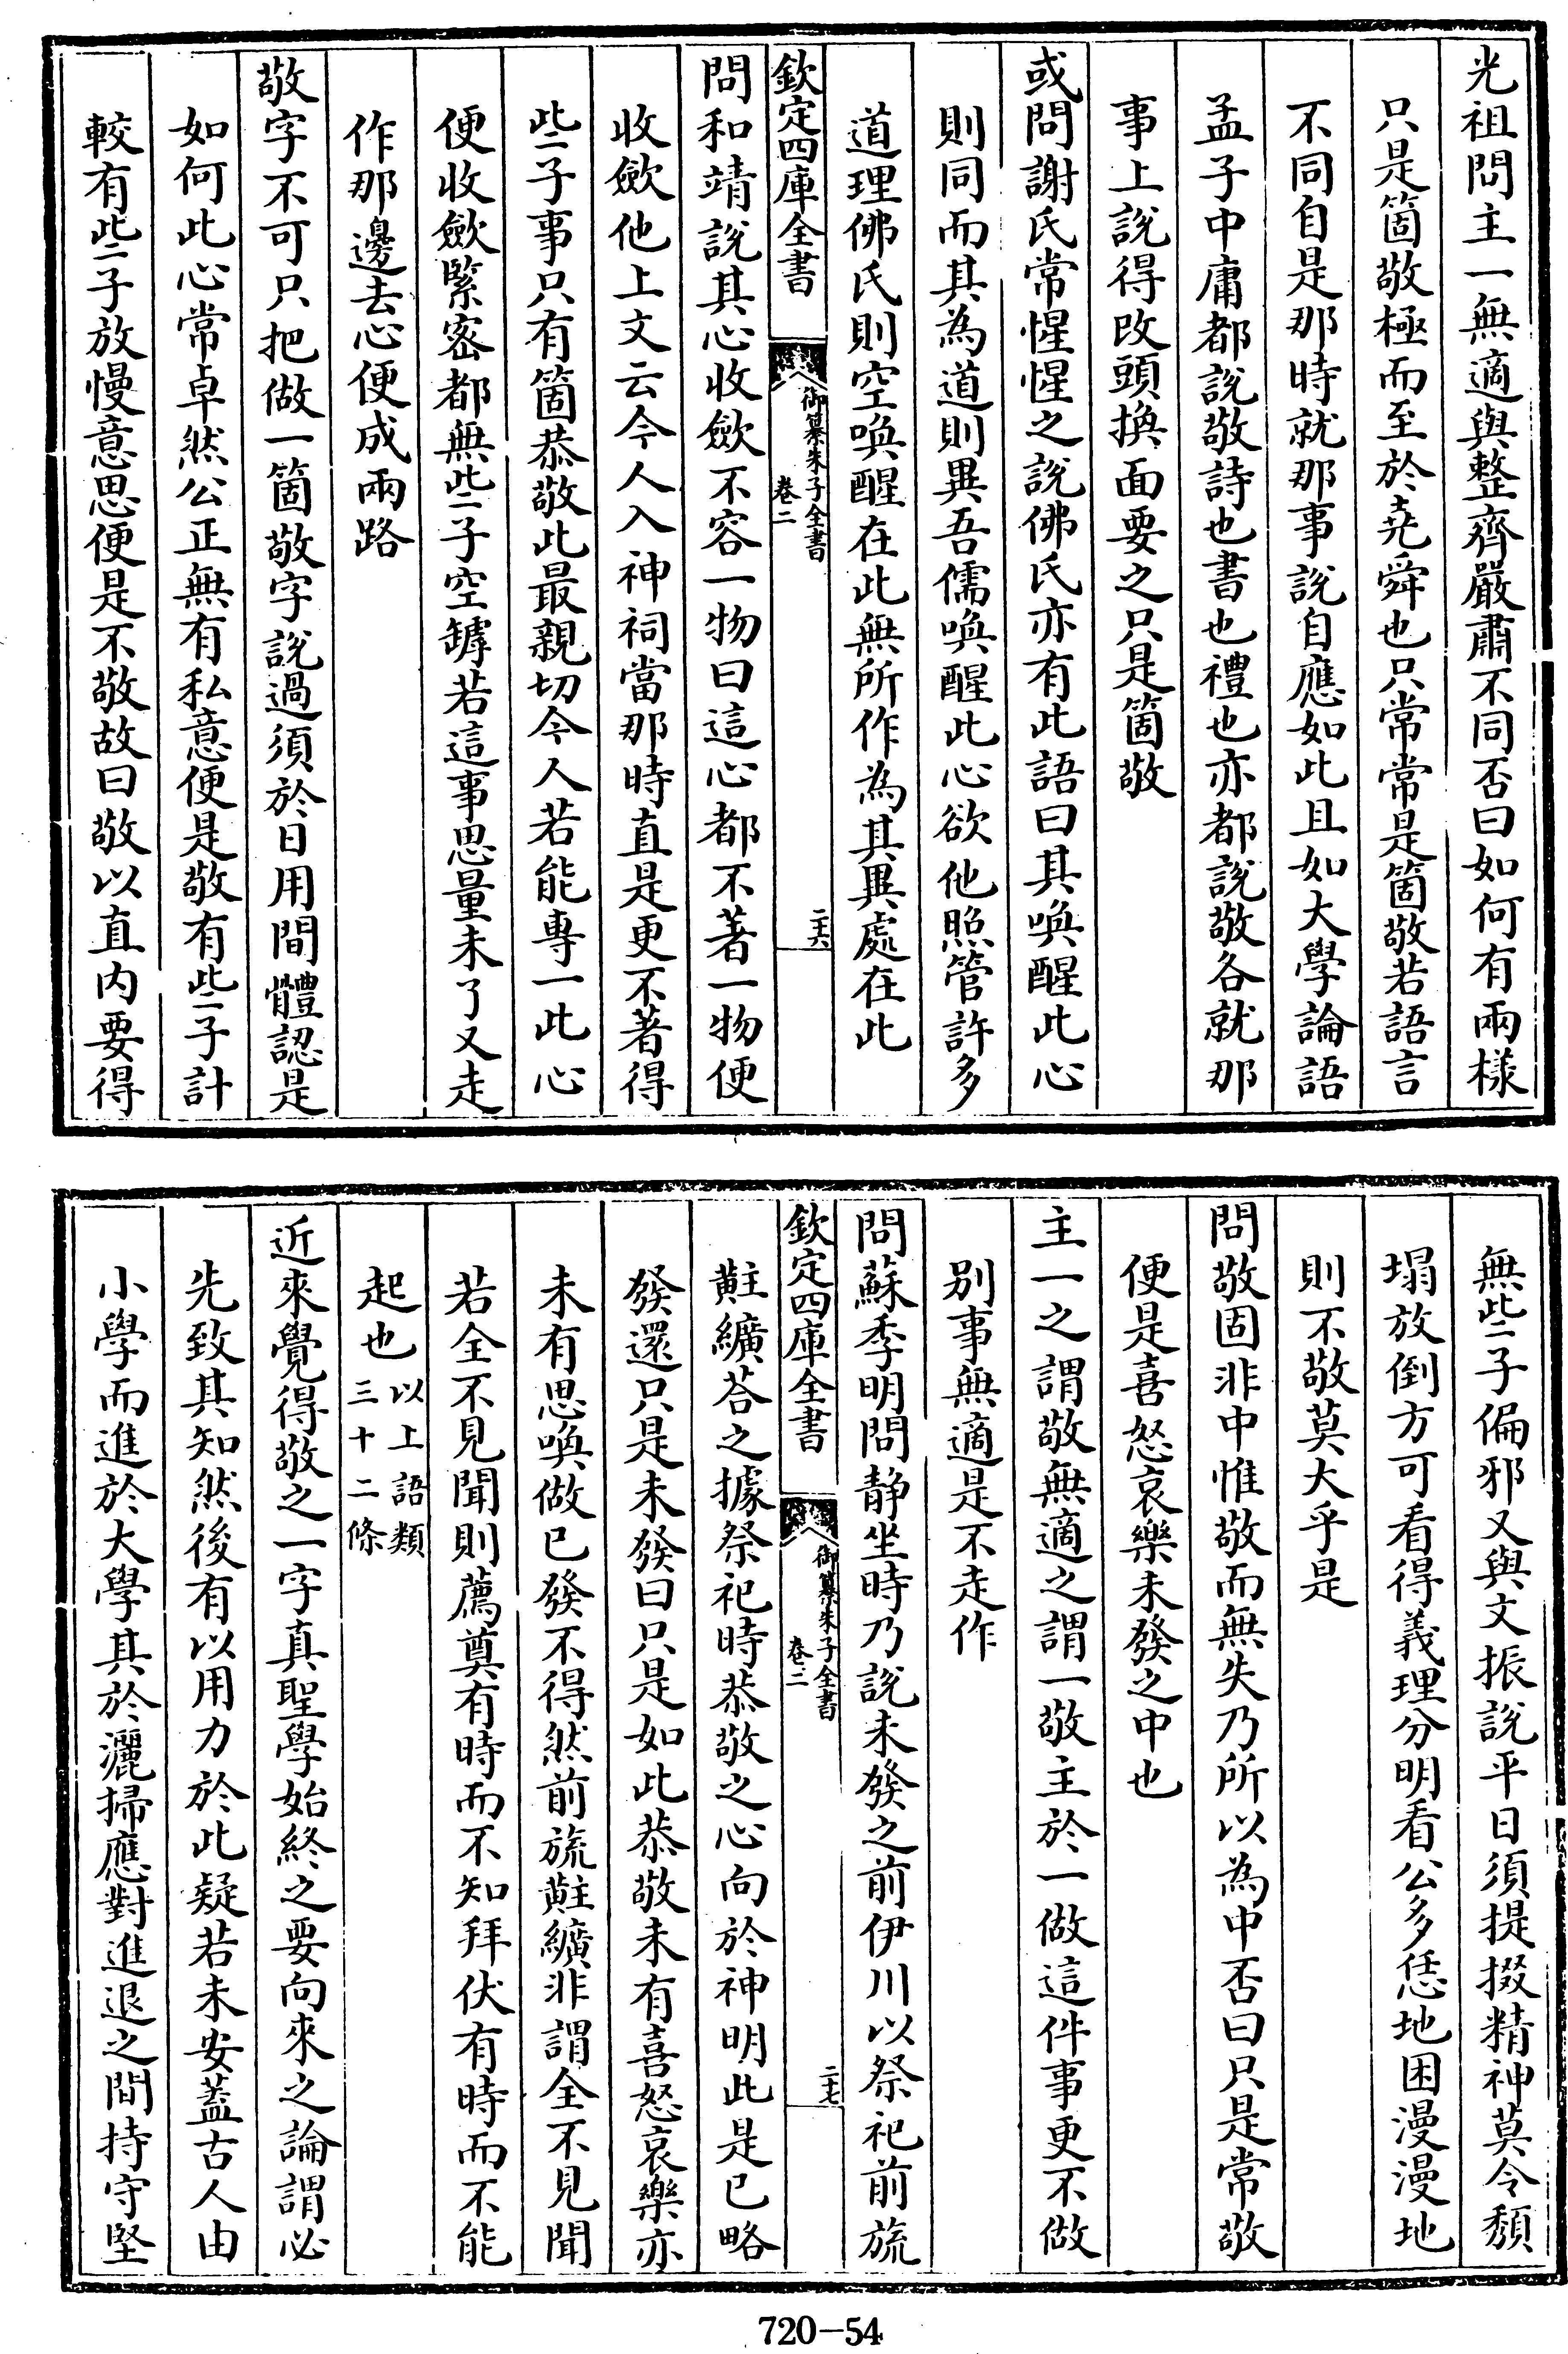 光祖問主一無適與整齊嚴肅不同否曰如何有兩樣
只是箇敬極而至於堯舜也只常常是箇敬若語言
不同自是那時就那事說自應如此且如大學論語
孟子中庸都說敬詩也書也禮也亦都說敬各就那
事上說得改頭換面要之只是箇敬
或問謝氏常惺惺之說佛氏亦有此語曰其喚醒此心
則同而其為道則異吾儒喚醒此心欲他照管許多
道理佛氏則空喚醒在此無所作為其異處在此
欽定四庫全書
御纂朱子全書
卷二
二十六
問和靖說其心收斂不容一物曰這心都不著一物便
收斂他上文云今人入神祠當那時直是更不著得
些子事只有箇恭敬此最親切今人若能專一此心
便收斂緊密都無些子空罅若這事思量未了又走
作那邊去心便成兩路
敬字不可只把做一箇敬字說過須於日用間體認是
如何此心常卓然公正無有私意便是敬有些子計
較有些子放慢意思便是不敬故曰敬以直内要得
無些子偏邪又與文振說平日須提掇精神莫令頹
塌放倒方可看得義理分明看公多恁地困漫漫地
則不敬莫大乎是
問敬固非中惟敬而無失乃所以為中否曰只是常敬
便是喜怒哀樂未發之中也
主一之謂敬無適之謂一敬主於一做這件事更不做
别事無適是不走作
問蘇季明問静坐時乃說未發之前伊川以祭祀前旒
欽定四庫全書
御纂朱子全書
卷二
二十七
黈纊荅之據祭祀時恭敬之心向於神明此是已略
發還只是未發曰只是如此恭敬未有喜怒哀樂亦
未有思喚做已發不得然前旒黈纊非謂全不見聞
若全不見聞則薦奠有時而不知拜伏有時而不能
起也
以上語類
三十二條
近來覺得敬之一字真聖學始終之要向來之論謂必
先致其知然後有以用力於此疑若未安蓋古人由
小學而進於大學其於灑掃應對進退之間持守堅
720-54